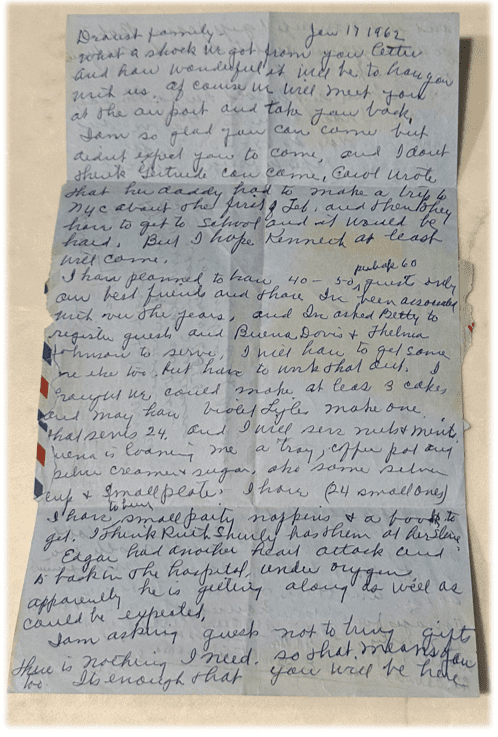 Dearest family Jan 17 1962
What a shock we got from you letter
and how wonderful it will be to have you
with us. Of course we will meet you
at the airport and take you back.
I am so glad you can come but
didnt expect you to come, and I dont
think Gertrude can come, Carol wrote
that her daddy had to make a trip to
NYC about the first of Feb. and then they
have to get to school and it would be
hard. But I hope Kenneth at least
will come.
I have planned to have 40 - 50 perhaps 60 guests only
our best friends and those Im been associated
with over the years, and Im asked Betty to
register guests and Buena Davis & Thelma
Johnson to serve, I will have to get some
one else too, but have to work that out. I
thought we could make at leas 3 cakes
and may have Violet Lyles make one
that serves 24. and I will serv nuts & mints.
uena is loaning me a tray, coffee pot and
silver creamer & sugar also some silver
cup & small plates I have (24 small ones)
I have to buy small party napkins & a book to
get. I think Ruth has them at her store.
Edgar had another heart attack and
is back in the hospital, under oxygen
apparently he is getting along as well as
could be expected.
I am asking guests not to bring gifts
there is nothing I need. so that means you
too. Its enough that you will be here